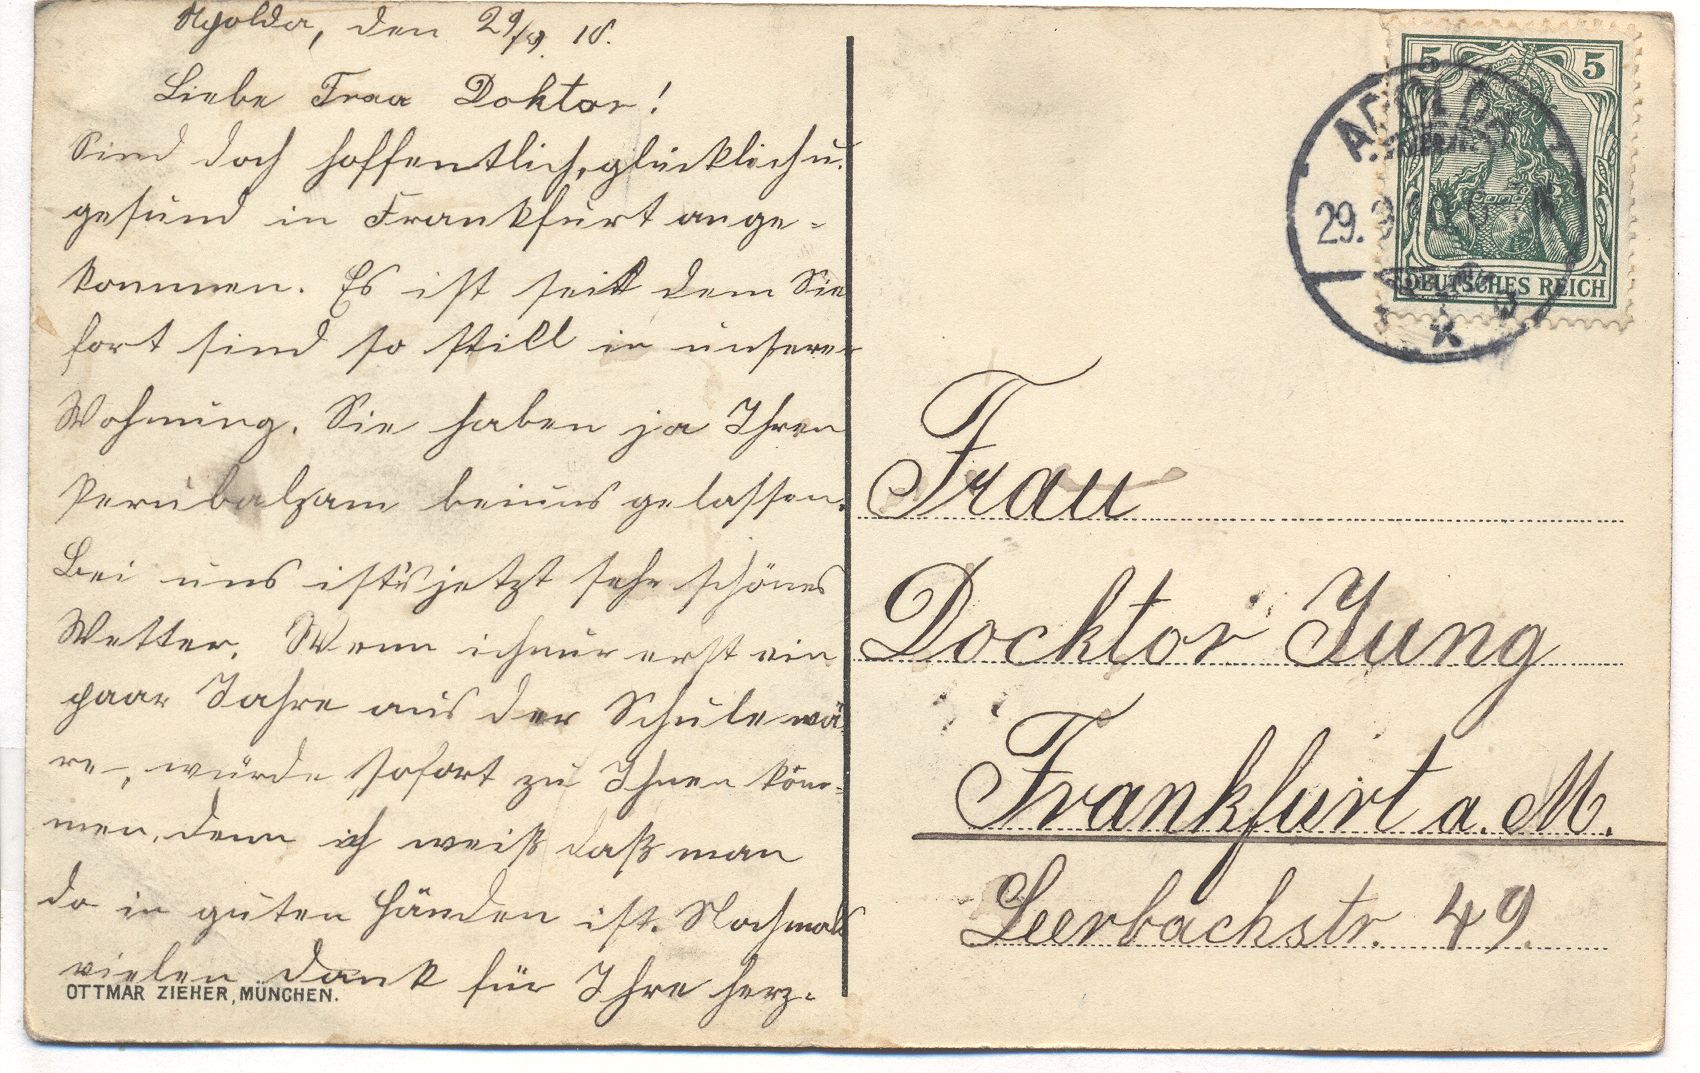 Apolda, den 29/8. 10.
Liebe Frau Doktor!
Sind doch hoffentlich, glücklich u.
gesund in Frankfurt ange-
kommen. Es ist seit dem Sie
fort sind so still in unserer
Wohnung. Sie haben ja Ihren
Perubalsam bei uns gelassen.
Bei uns ist's jetzt sehr schönes
Wetter. Wenn ich nur erst ein
paar Jahre aus der Schule wä-
re, würde sofort zu Ihnen kom-
men, denn ich weiß daß man
da in guten Händen ist. Nochmals
vielen Dank für Ihre herz-
OTTMAR ZIEHER, MÜNCHEN.
5 5
DEUTSCHES REICH
APOLDA
29. 8
Frau
Docktor Jung
Frankfurt a. M.
Leerbachstr. 49.